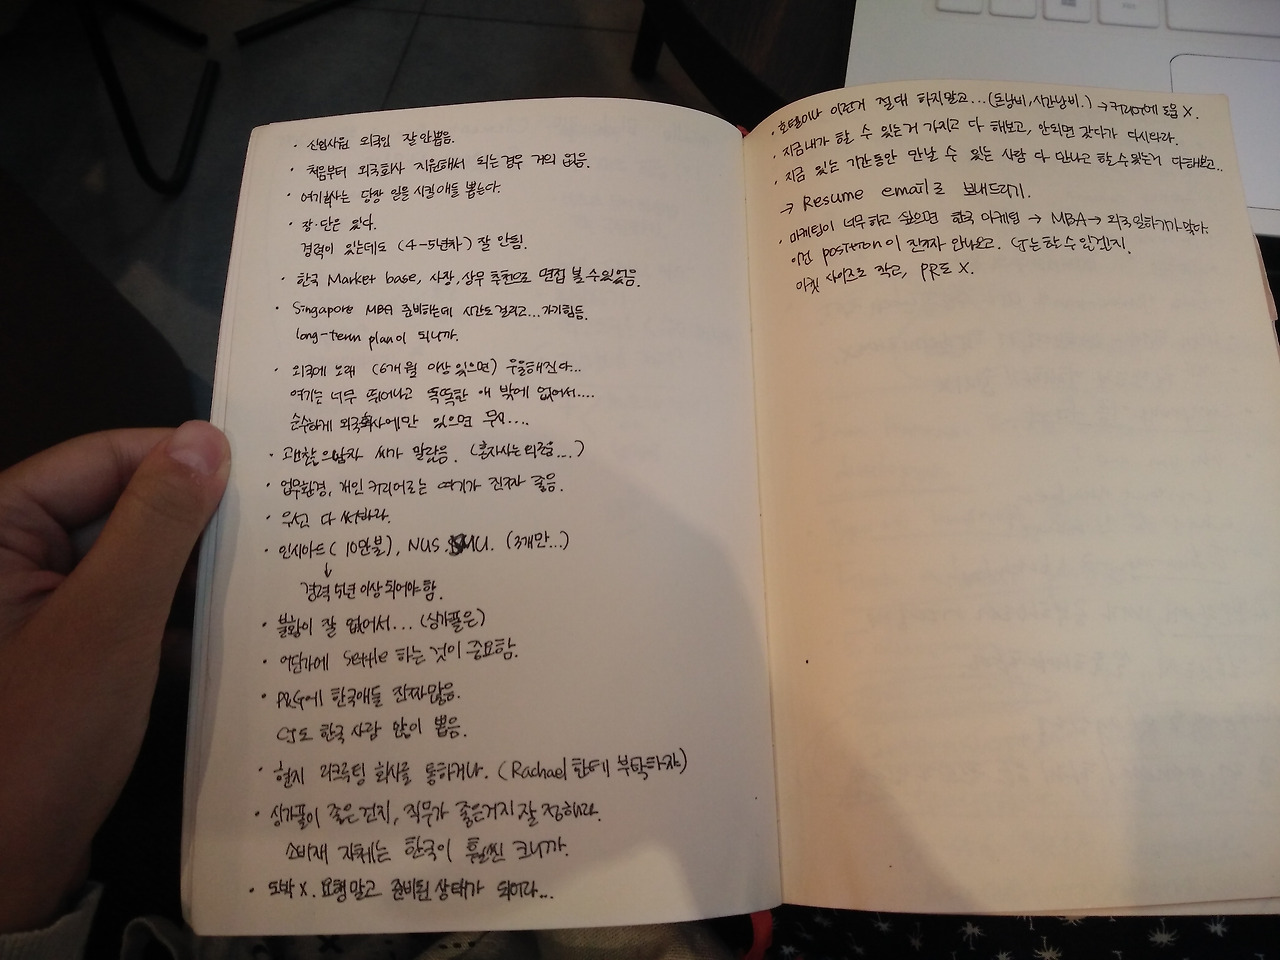 · 신입사원 외국인 잘 안뽑음.
· 처음부터 외국회사 지원해서 되는경우 거의 없음.
· 여기회사는 당장 일을 시킬애들 뽑는다.
· 장·단은 있다.
경력이 있는데도 (4-5년차) 잘 안됨.
· 한국 Market base, 사장, 상무 추천으로 면접 볼 수 있었음.
· Singapore MBA 준비하는데 시간도 걸리고... 가기힘듬.
long-term plan이 되니까.
· 외국에 오래 (6개월 이상 있으면) 우울해진다...
여기는 너무 뛰어나고 똑똑한 애 밖에 없어서....
순수하게 외국회사에만 있으면
· 괜찮은 남자 씨가 말랐음. (혼자사는 외로움...)
· 업무환경, 개인 커리어로는 여기가 진짜 좋음.
· 우선 다 써봐라.
· 인시아드 (10만불), NUS. SMU. (3개만...)
↓
경력 5년 이상 되어야 함.
· 불황이 잘 없어서... (싱가폴은)
· 어딘가에 settle 하는 것이 중요함.
· P&G에 한국애들 진짜 많음.
CJ도 한국 사람 많이 뽑음.
· 현지 리크루팅 회사를 통하거나. (Rachael 한테 부탁하자)
· 싱가폴이 좋은건지, 직무가 좋은거지 잘 정해라.
소비재 자체는 한국이 훨씬 크니까.
· 도박 X. 요행말고 준비된 상태가 되어라...
· 호텔이나 이런거 절대 하지말고... (돈낭비, 시간낭비.) → 커리어에 도움 X.
· 지금 내가 할 수 있는거 가지고 다 해보고, 안되면 갔다가 다시와라.
· 지금 있는 기간동안 만날 수 있는 사람 다 만나고 할 수 있는거 다해보고..
→ Resume email로 보내드리기.
· 마케팅이 너무하고 싶으면 한국 마케팅 → MBA → 외국 일하기가 맞다.
이런 position이 진짜 안나오고. CJ는 할 수 있겠지.
마켓 사이즈도 작고, PR도 X.